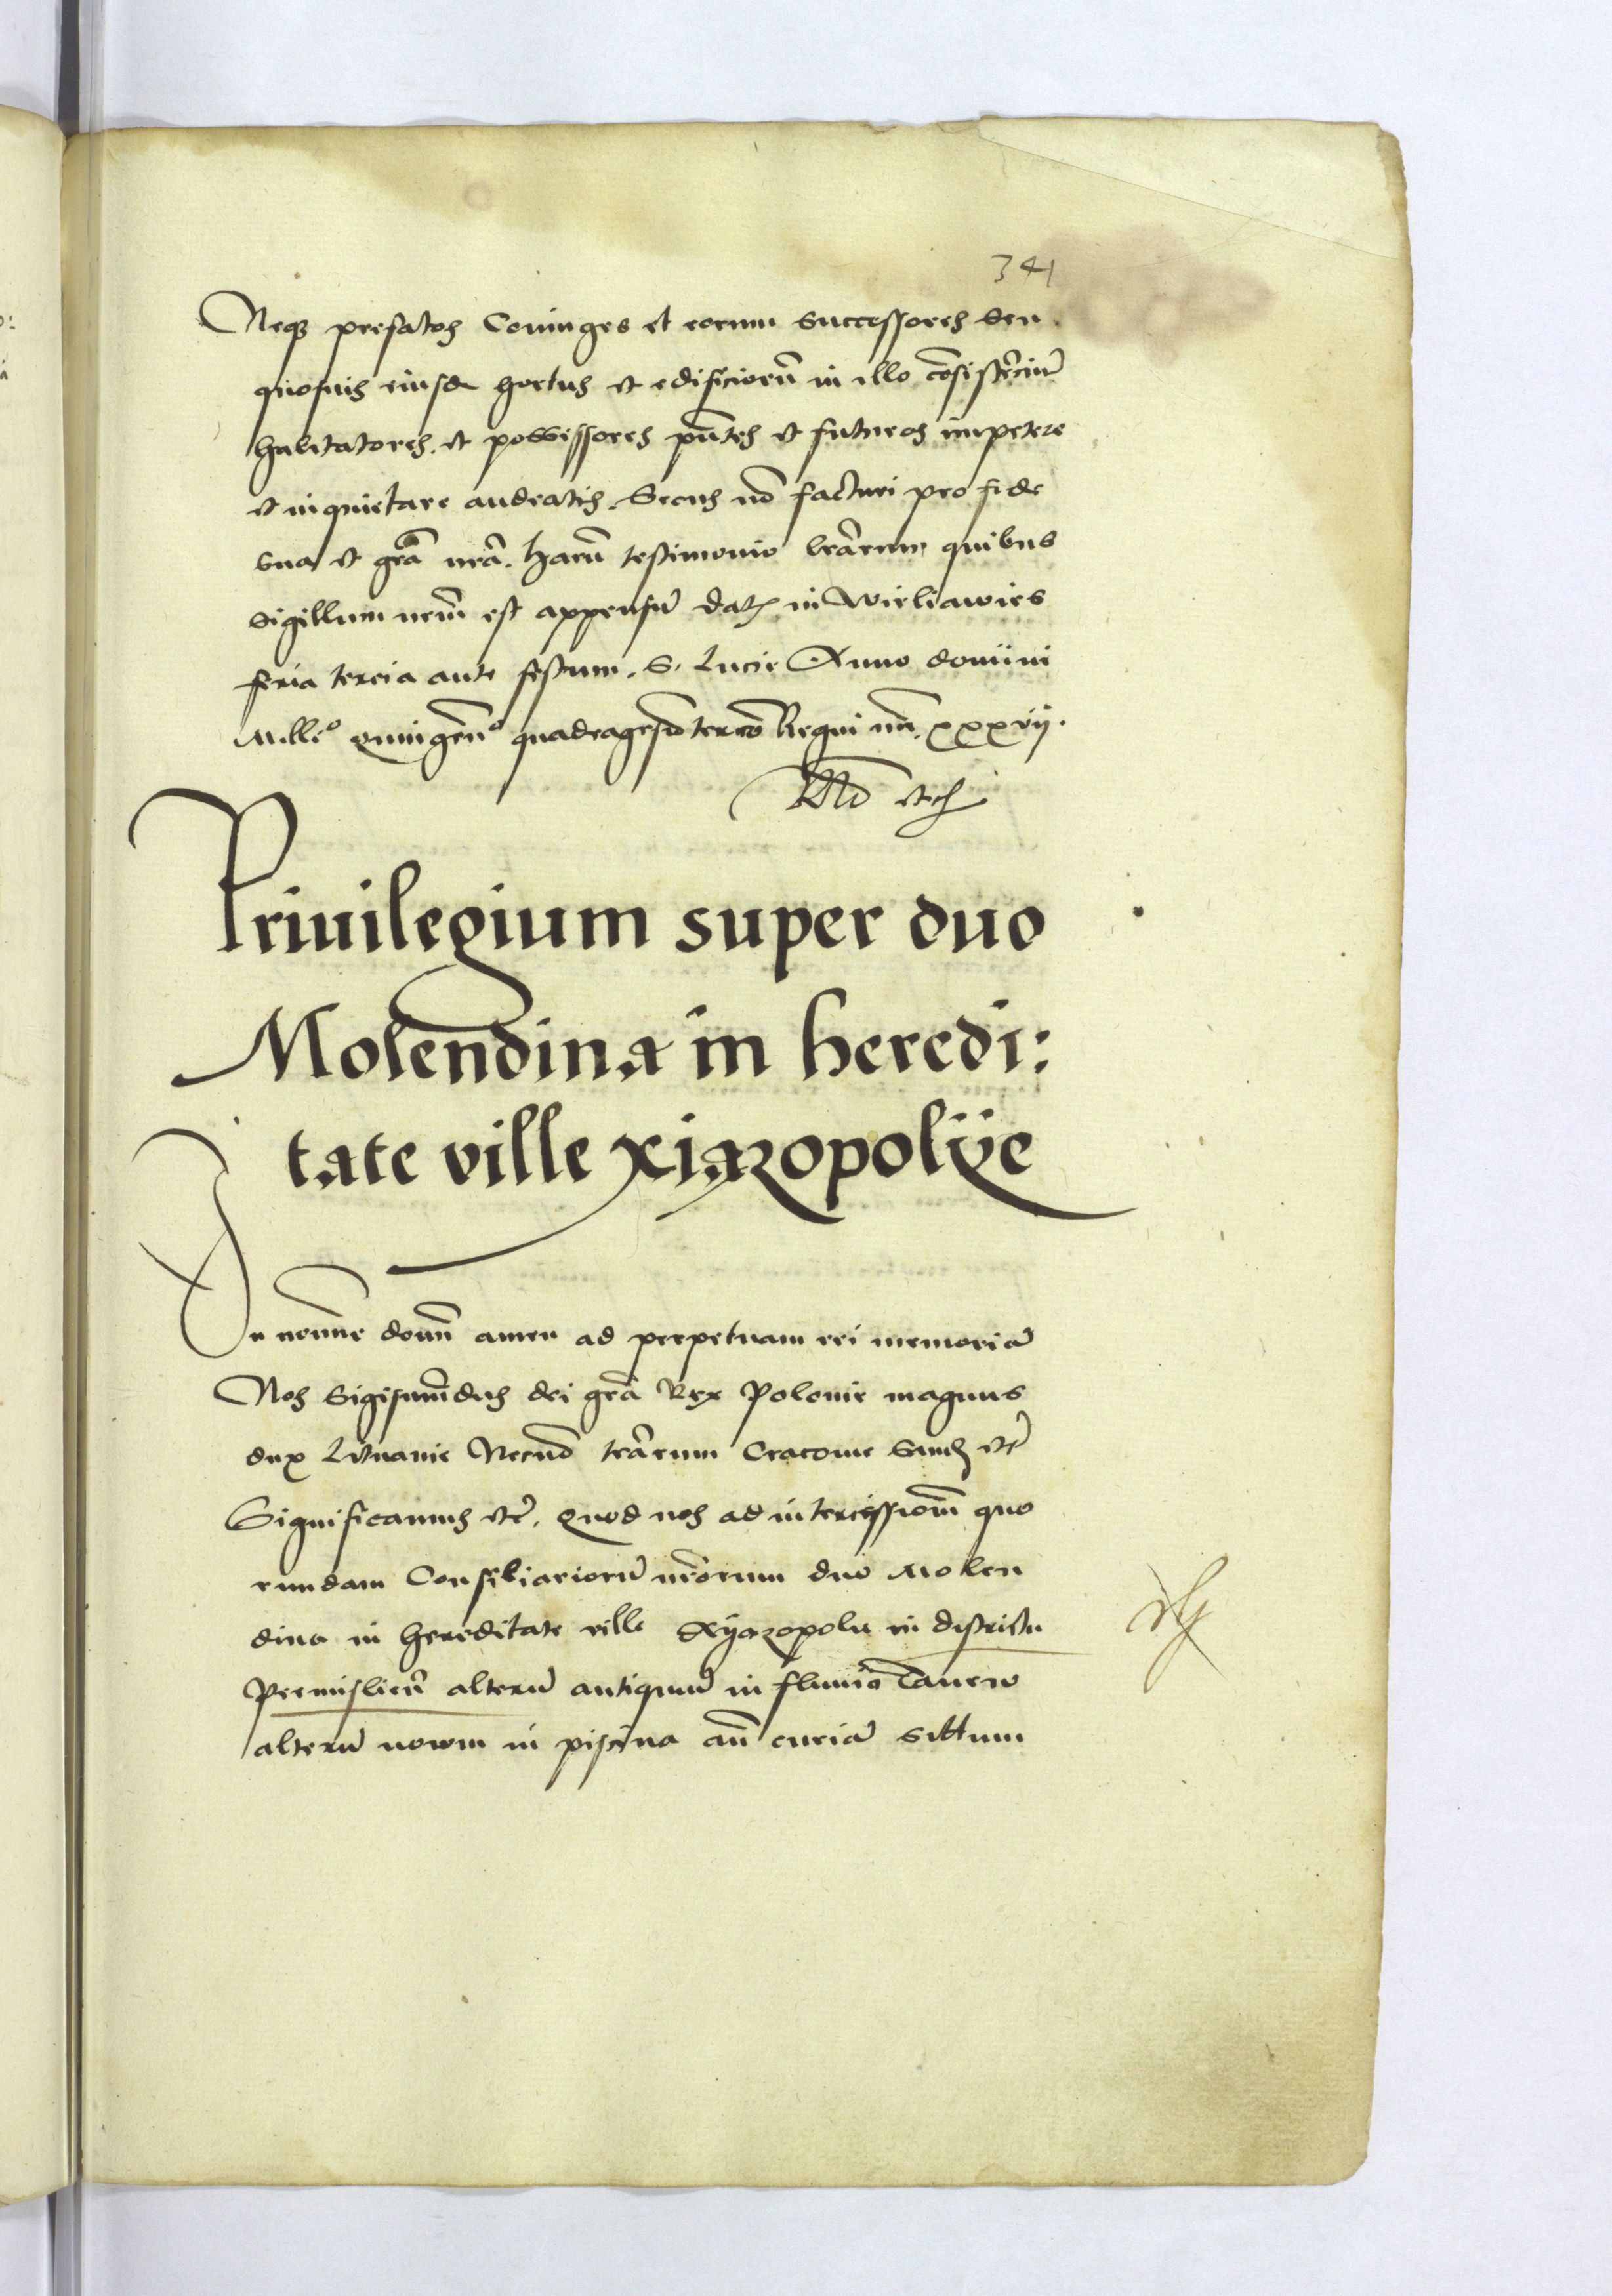 341
Neq3 prefatos Coniuges et eorum Successores seu
quosuis eiusdē hortus et edificiorū in illo cōsistēciū
habitatores et possessores pn̄tes et futuros impetere
et inquietare audeatis. Secus nō facturi pro fide
sua et grā nrā. harū testimonio lrārum quibus
Sigillum nrm̄ est appensū dat in Wieliawies
feria tercia ante festum S. Lucie Anno domini
Milleo quingēno quadragesīo tercō Regni nrī xxxvij.
Md etc
Priuilegium super duo
Molendina in heredi:
tate ville xiazopolije
In nomīne domī amen ad perpetuam rei memoriā
Nos Sigismūdus dei grā Rex Polonie magnus
dux Lituanie Necnō terārum Cracouie Sand etc
Significamus etc. Quod nos ad intercessionē quo
rundam Consiliariorū nrōrum duo Molen
dina in hereditate ville Xyazopolie in districtu
Premisliēn alterū antiquū in fluuio Tanew
alterū nouum in piscina an̄ curiā situm